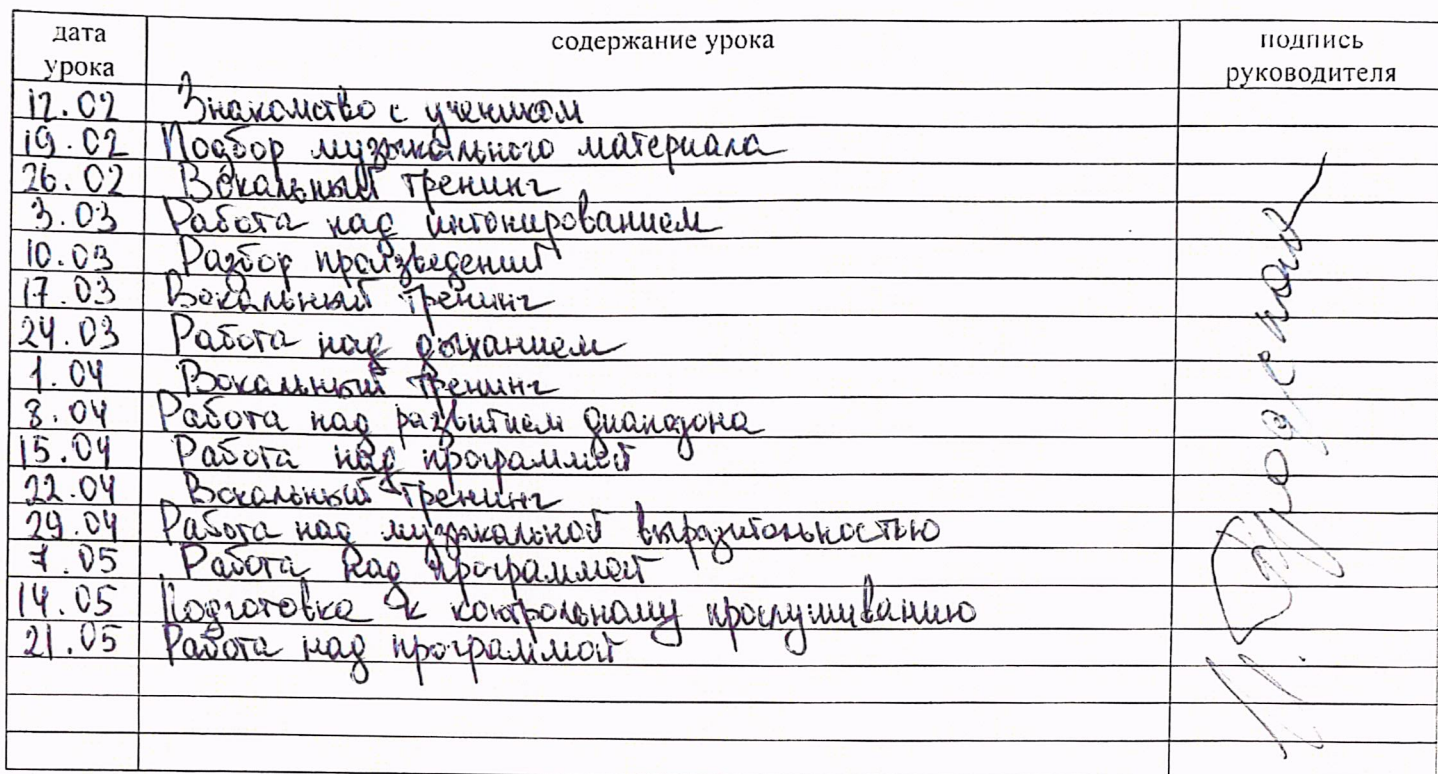 дата урока содержание урока подпись руководителя
12.02 Знакомство с учеником
19.02 Подбор музыкального материала
26.02 Вокальный тренинг
3.03 Работа над интонированием
10.03 Разбор произведений
17.03 Вокальный тренинг
24.03 Работа над дыханием
1.04 Вокальный тренинг
8.04 Работа над развитием диапазона
15.04 Работа над программой
22.04 Вокальный тренинг
29.04 Работа над музыкальной выразительностью
7.05 Работа над программой
14.05 Подготовка к контрольному прослушиванию
21.05 Работа над программой